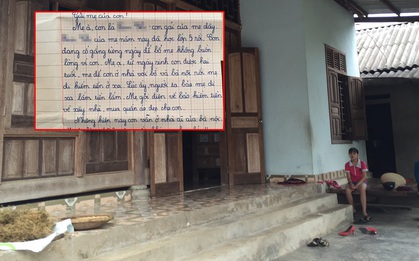 Gửi mẹ của con!
Mẹ à, con là con gái của mẹ đây
của mẹ năm nay đã học lớp 5 rồi. Con
đang cố gắng từng ngày để bố mẹ không buồn
lòng về con. Mẹ ạ, từ ngày sinh con được hai
tuổi, mẹ để con ở nhà với bố và bà nội rồi mẹ
đi kiếm tiền ở xa. Lúc ấy, người ta bảo mẹ đi
xa lắm lắm. Mẹ gọi điện về bảo kiếm tiền
về xây nhà, mua quần áo đẹp cho con.
Nhưng hiện nay con vẫn ở nhà cũ của bà nội